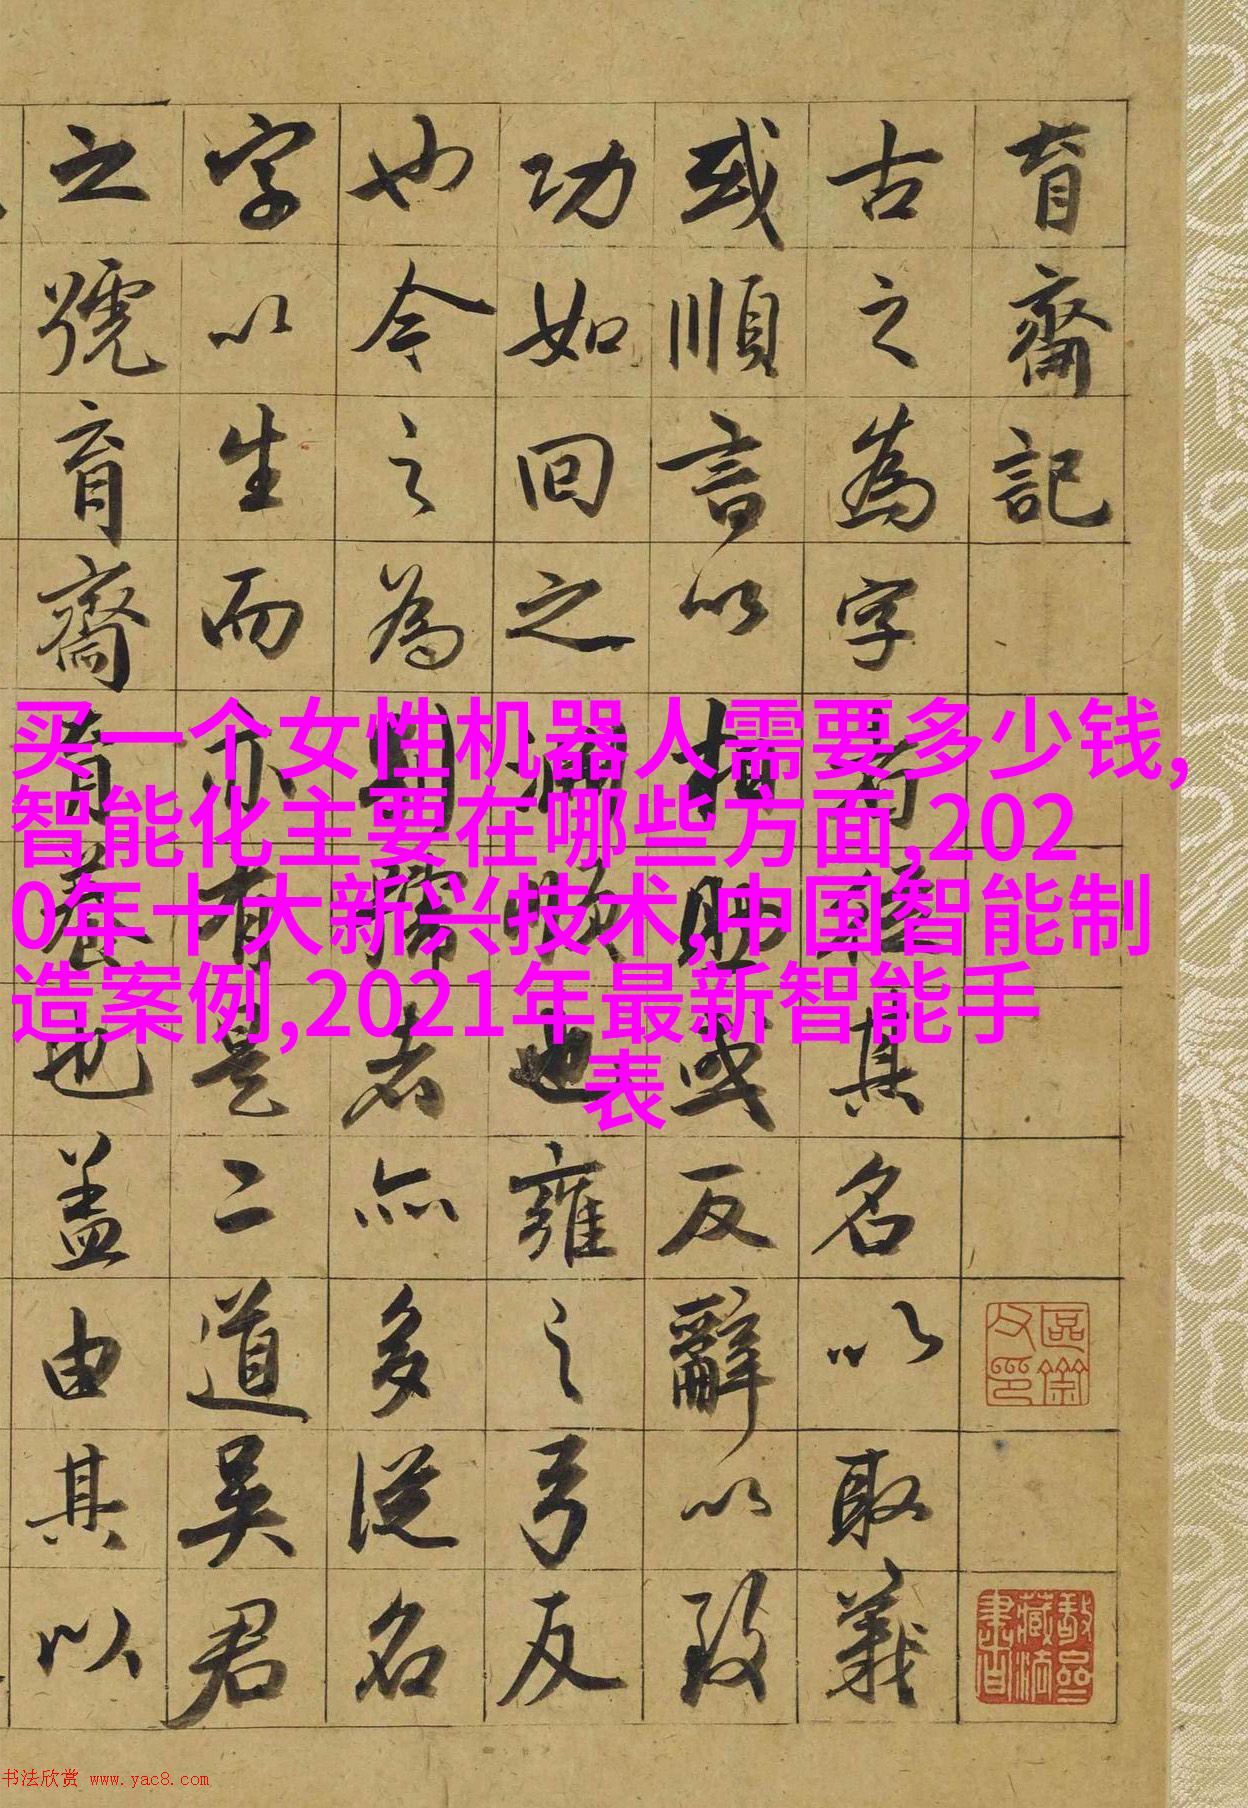 育齋記
古之為字者其名以取義
或順言以相或反辭以致
功如回之淵也雍之弓反
也今之為別號者亦多從名
字以生而亦有是二道吳君
之號育齋育養也蓋由其以
买一个女性机器人需要多少钱,
智能化主要在哪些方面,202
0年十大新兴技术,中国智能制
造案例,2021年最新智能手
表
书法欣赏 www.yac8.com